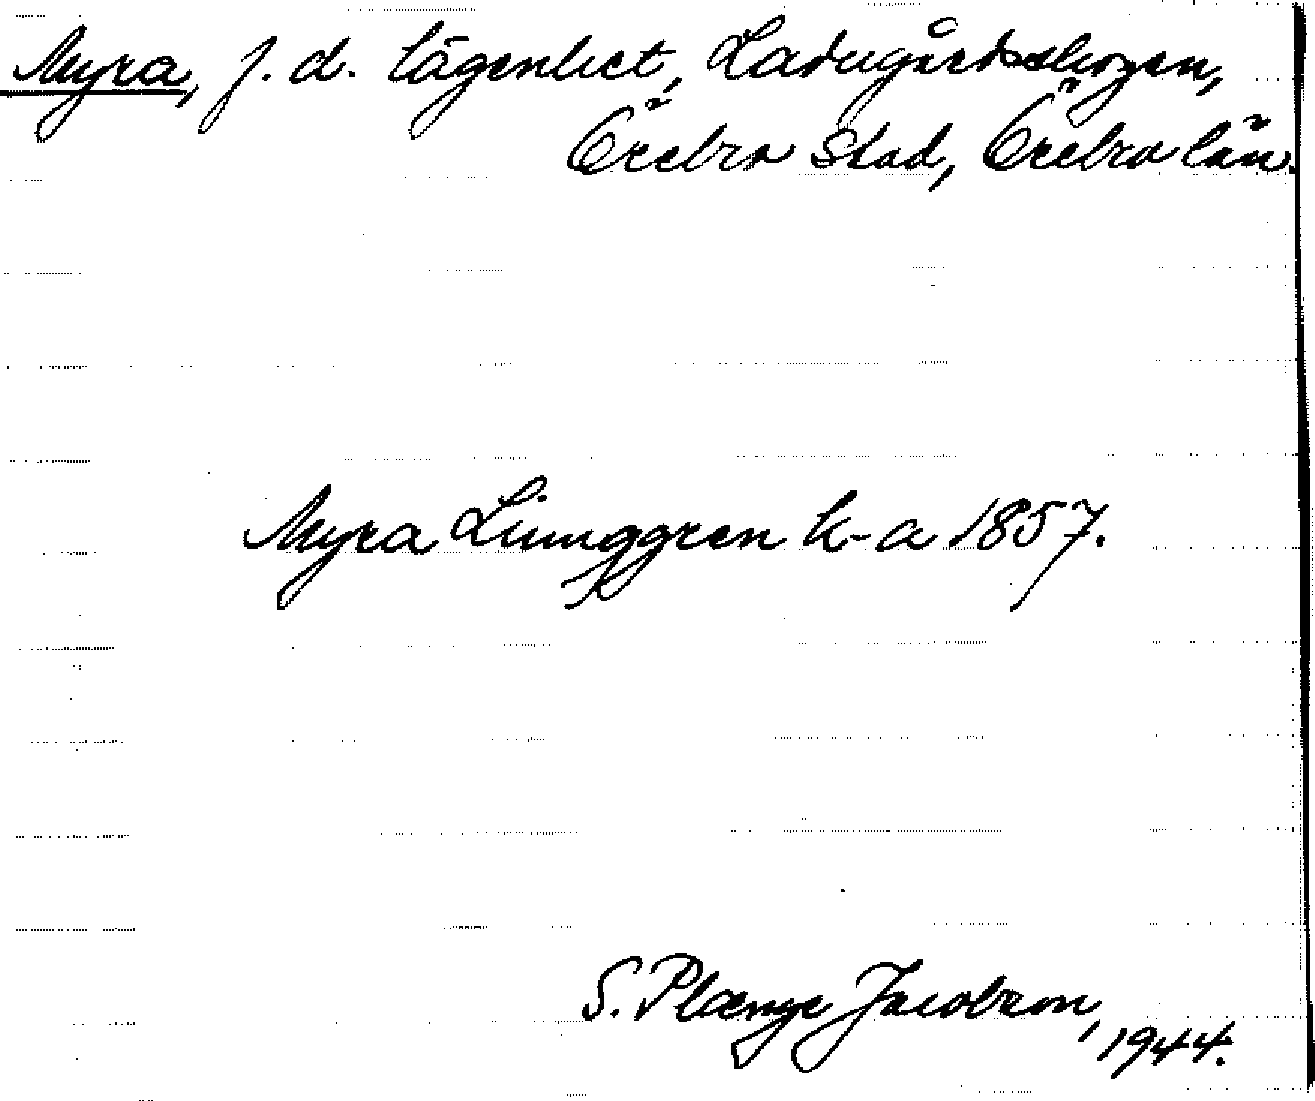 Myra, f. d. lägenhet, Ladugårdsskogen,
Örebro stad, Örebro län.
Myra Ljunggren k-a 1857.
S. Plænge Jacobson,
1944.